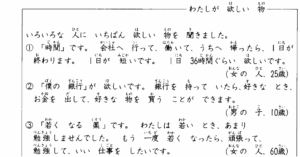 わたしが 欲しい 物
いろいろな 人に いちばん 欲しい 物を 聞きました。
①「時間」です。 会社へ 行って、働いて、うちへ 帰ったら、1日が
終わります。 1日が 短いです。 1日 36時間ぐらい 欲しいです。
(女の 人、25歳)
②「僕の 銀行」が 欲しいです。 銀行を 持って いたら、好きな とき、
お金を 出して、好きな 物を 買う ことが できます。
(男の 子、10歳)
③「若く なる 薬」です。 わたしは 若い とき、あまり
勉強しませんでした。 もう 一度 若く なったら、頑張って、
勉強して、いい 仕事を したいです。
(女の 人、60歳)